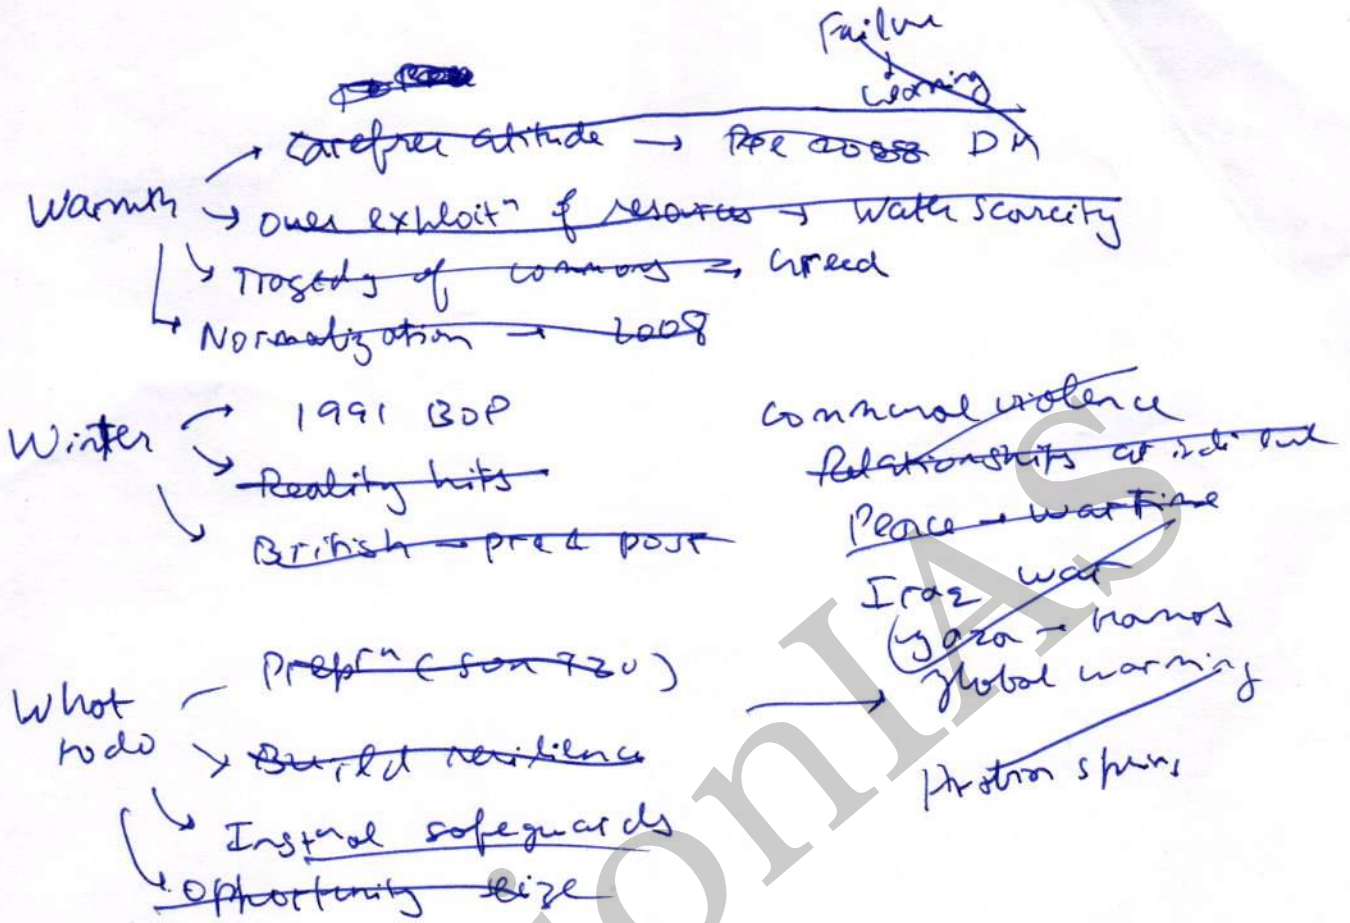 Failure
↓
Learning
Carefree atitude → Pre 2008 DM
Warmth → over exploitⁿ of resources → Water scarcity
Tragedy of commons → Greed
Normalization → 2008
Winter
1991 BOP
Reality hits
British → pre & post
communal violence
Relationships at indi
Peace → War time
Iraq war
Gaza – Hamas
global warming
What to do
Prepⁿ (Sun Tzu)
Build resilience
Instⁿal safeguards
Opportunity seize
spring
onIAS